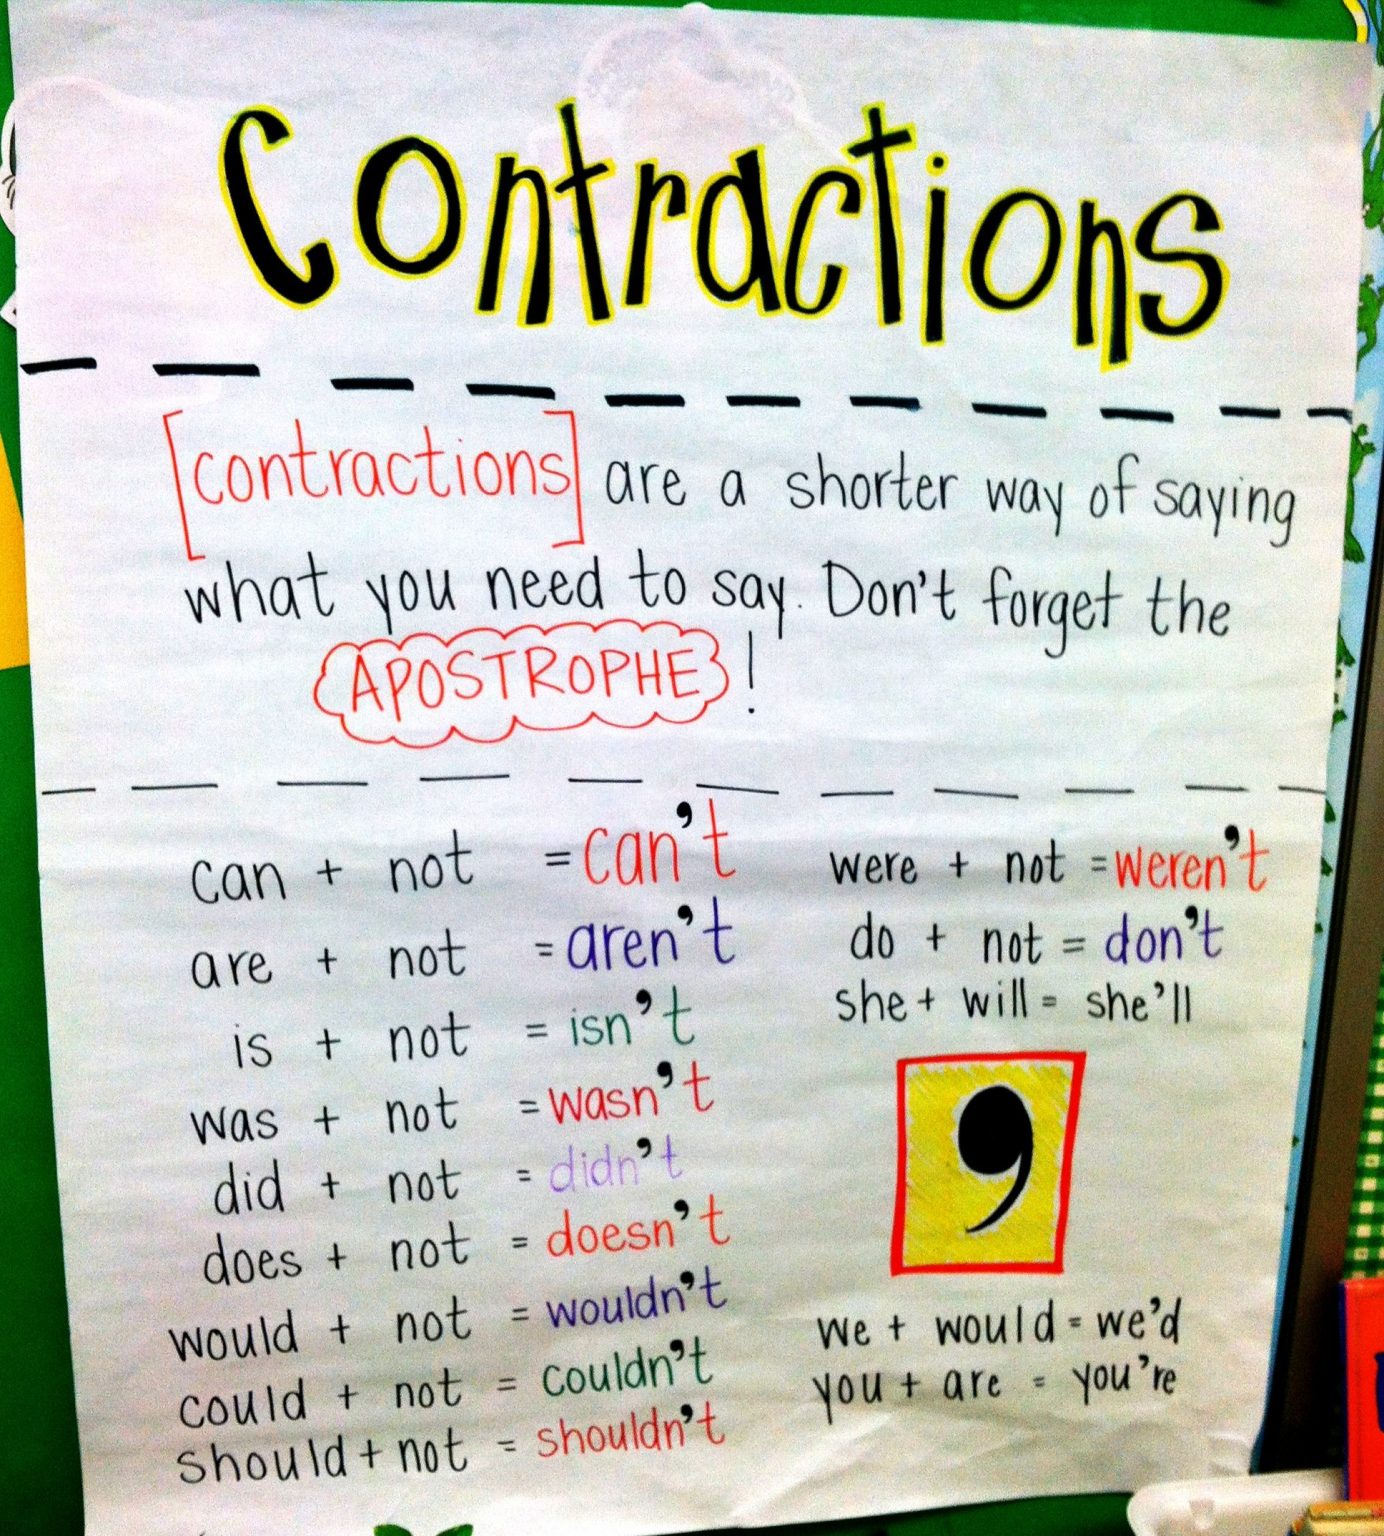 Contractions
[contractions] are a shorter way of saying
what you need to say. Don't forget the
APOSTROPHE!
can + not = can't
are + not = aren't
is + not = isn't
was + not = wasn't
did + not = didn't
does + not = doesn't
would + not = wouldn't
could + not = couldn't
should + not = shouldn't
were + not = weren't
do + not = don't
she + will = she'll
’
we + would = we'd
you + are = you're